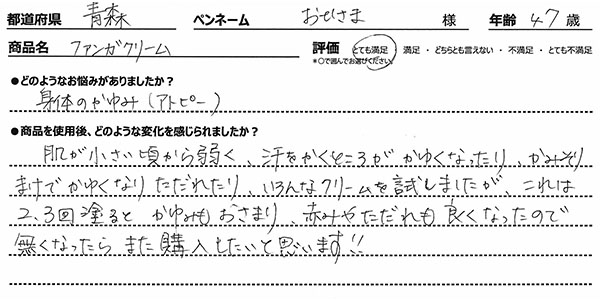 都道府県 青森 ペンネーム おせさま 様 年齢 47 歳
商品名 ファンガクリーム 評価 とても満足 ・ 満足 ・ どちらとも言えない ・ 不満足 ・ とても不満足
*○で囲んでお選びください。
●どのようなお悩みがありましたか？
身体のかゆみ（アトピー）
●商品を使用後、どのような変化を感じられましたか？
肌が小さい頃から弱く、汗をかくところが かゆくなったり、かみそり
まけで かゆくなり ただれたり、いろんなクリームを試しましたが、これは
2、3回塗ると かゆみも おさまり、赤みや ただれも 良くなったので
無くなったら また 購入したいと思います!!